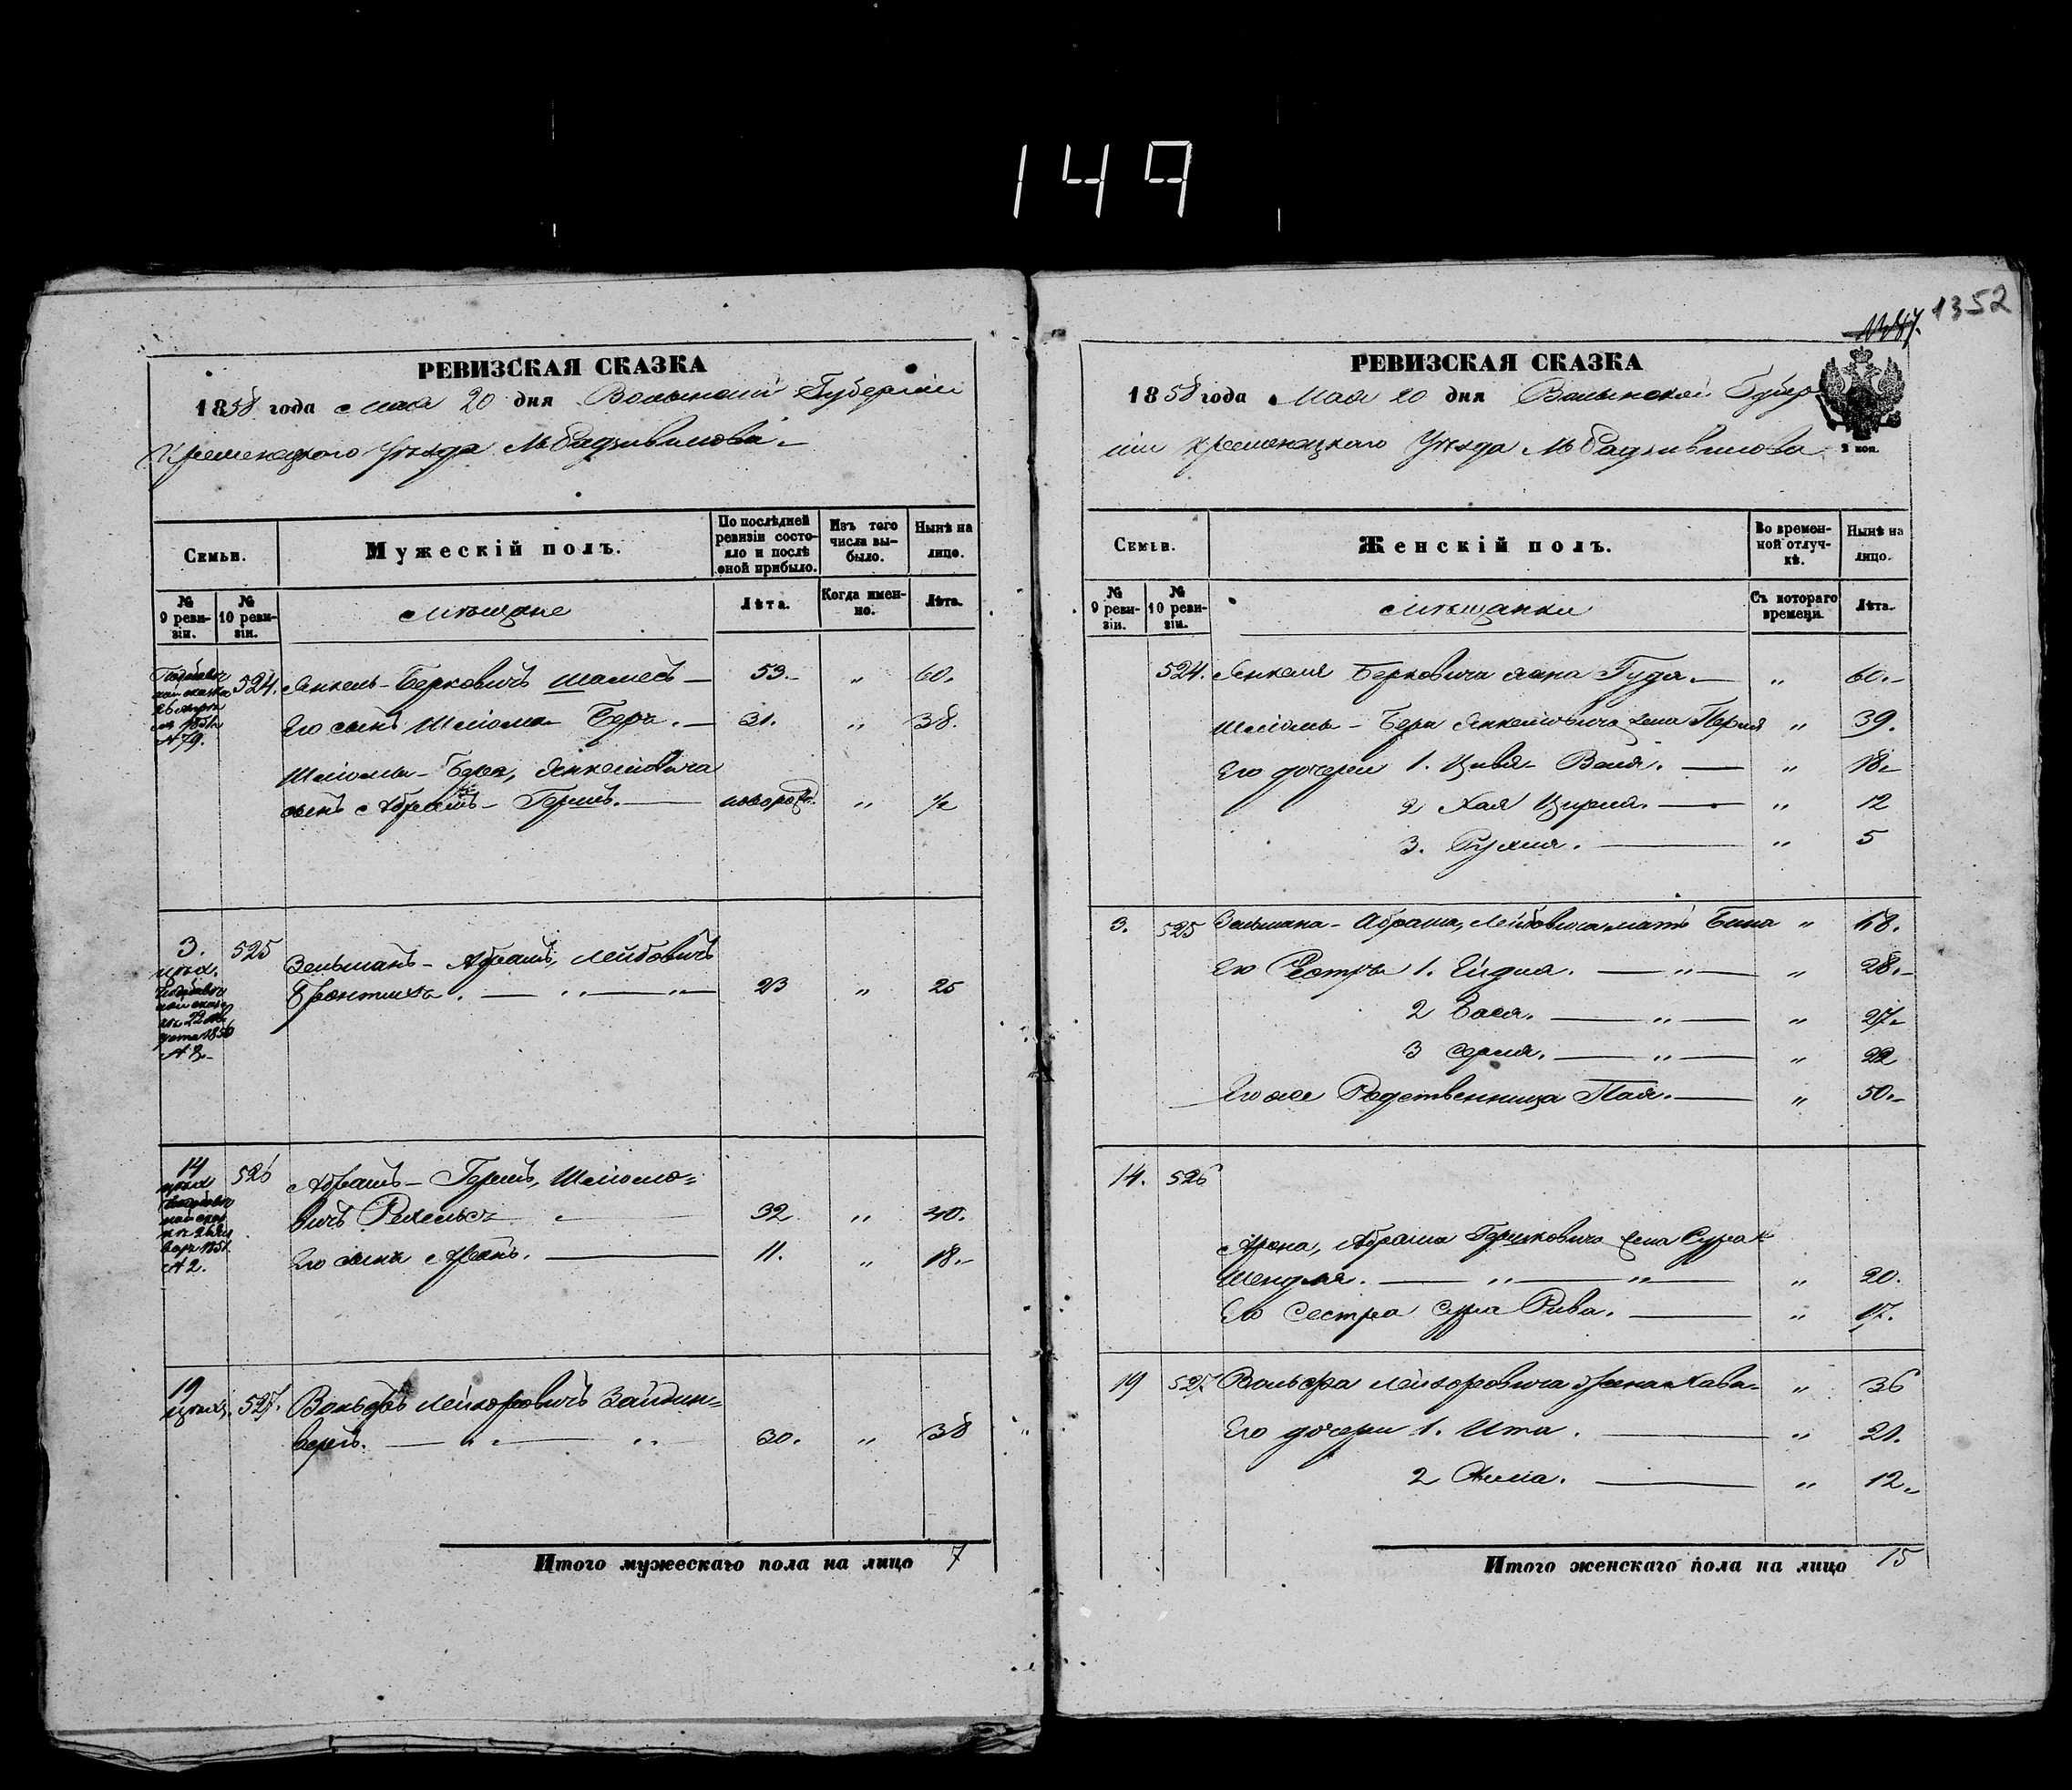 149
1352
РЕВИЗСКАЯ СКАЗКА
1858 года Мая 20 дня Волынской Губерніи
Кременецкого Уѣзда М. Радзивилова
Семьи.
Мужескій полъ.
По послѣдней ревизіи состояло и послѣ оной прибыло.
Изъ того числа выбыло.
Нынѣ на лицо.
№ 9 ревизіи.
№ 10 ревизіи.
Мѣщане
Лѣта.
Когда именно.
Лѣта.
524. Янкель-Берковичъ Шамесъ — 53. „ 60.
Его сынъ Шліома Беръ. — 31. „ 38.
Шліомы-Бера, Янкелювича
сынъ Абрамъ-Гершъ. — новорожд. „ ½
№ 79.
3. 525 Зельманъ-Абрамъ, Лейбовичъ
23 „ 25
14 526 Абрамъ-Гершъ, Шліомо=
вичъ 32 „ 40.
Его сынъ Аронъ. — 11. „ 18.
№ 2.
19 527. Вольфъ Лейзоровичъ Зайдин=
верг. — „ — „ 30. „ 38
Итого мужескаго пола на лицо 7
РЕВИЗСКАЯ СКАЗКА
1858 года Мая 20 дня Волынской Губер=
ніи Кременецкаго Уѣзда М. Радзивилова
2 коп.
Семьи.
Женскій полъ.
Во временной отлучкѣ.
Нынѣ на лицо.
№ 9 ревизіи.
№ 10 ревизіи.
Мѣщанки
Съ котораго времени.
Лѣта.
524. Янкеля Берковича жена Гудя. — „ 60.
Шліомы-Бера Янкелювича жена Перля „ 39.
Его дочери 1. Цивя-Бейя. — „ 18.
2 Хая Цирля. — „ 12
3. Рухля. — „ 5
3. 525 Зельмана-Абрама, Лейбовича мать „ 68.
Его Сестры 1. Ейдля. — „ — „ 28.
2 Бася. — „ — „ 27.
3 Серля. — „ — „ 22
Его же Родственница — „ 50.
14. 526
Арона, Абрама Гершковича жена Сура
Шендля. — „ — „ — „ 20.
Его Сестра Сура Рива. — „ 17.
19 527. Вольфа Лейзоровича жена Хава „ 36
Его дочери 1. Ита. — „ 21.
2 — „ 12.
Итого женскаго пола на лицо 15